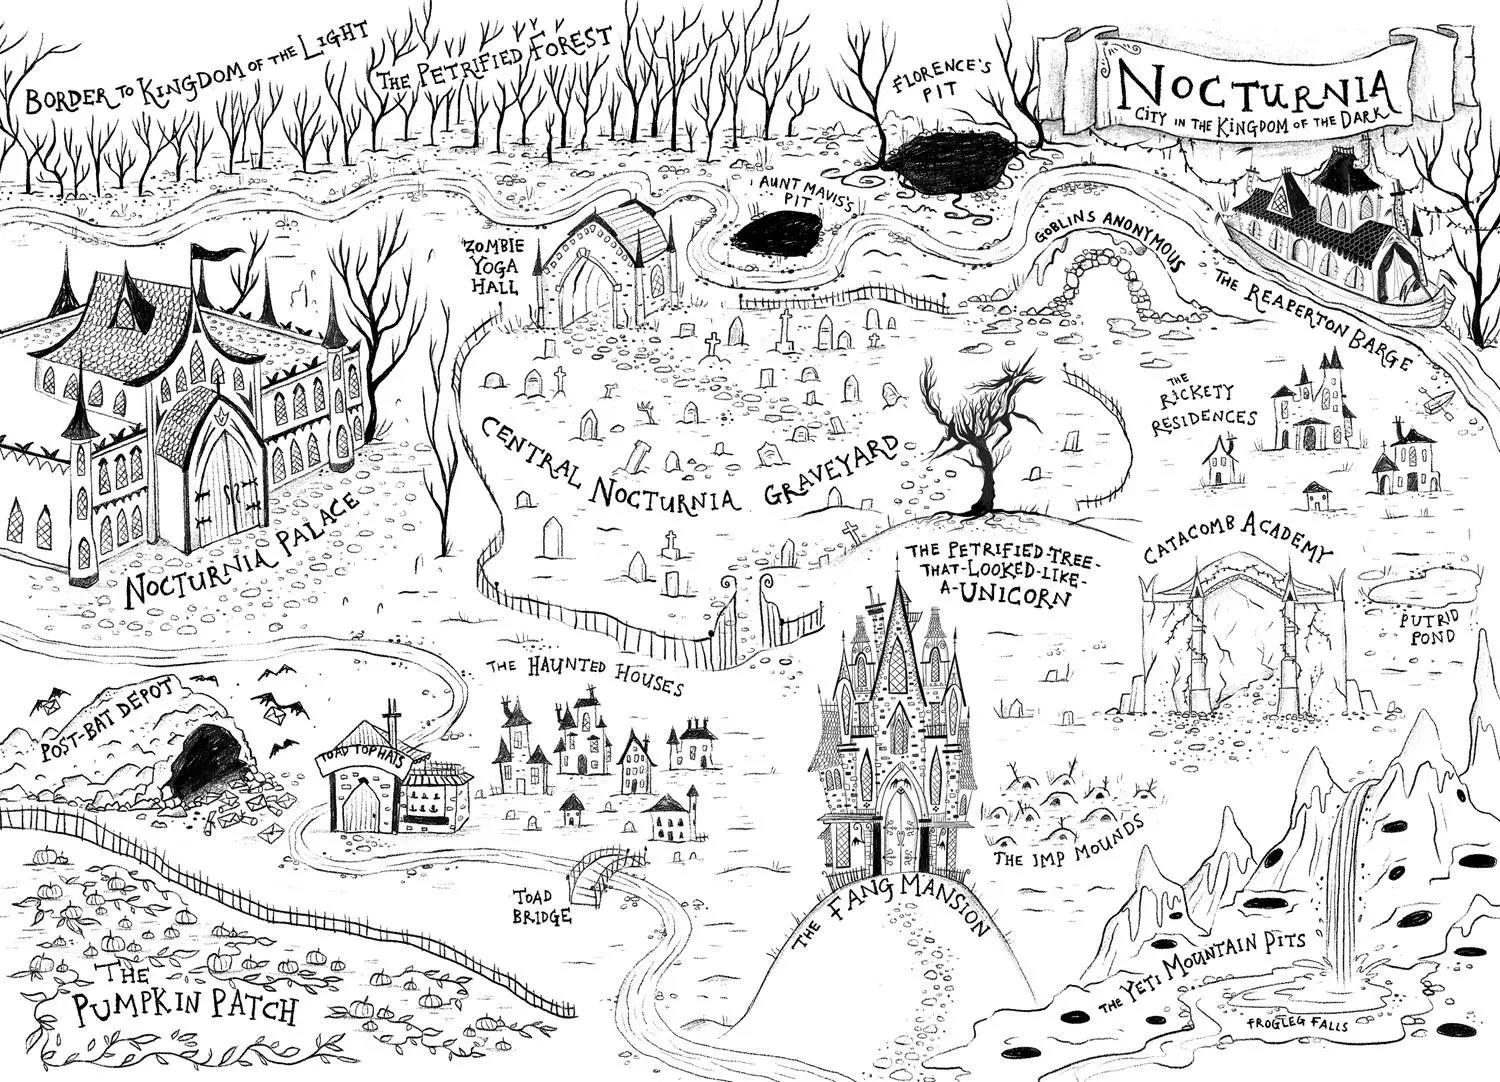 BORDER TO KINGDOM OF THE LIGHT
THE PETRIFIED FOREST
FLORENCE'S
PIT
NOCTURNIA
CITY IN THE KINGDOM OF THE DARK
AUNT MAVIS'S
PIT
GOBLINS ANONYMOUS
ZOMBIE
YOGA
HALL
THE REAPERTON BARGE
THE
RICKETY
RESIDENCES
CENTRAL NOCTURNIA GRAVEYARD
NOCTURNIA PALACE
THE PETRIFIED-TREE-
THAT-LOOKED-LIKE-
A-UNICORN
CATACOMB ACADEMY
PUTRID
POND
THE HAUNTED HOUSES
POST-BAT DEPOT
TOAD TOP HATS
THE IMP MOUNDS
TOAD
BRIDGE
THE FANG MANSION
THE YETI MOUNTAIN PITS
THE
PUMPKIN PATCH
FROGLEG FALLS